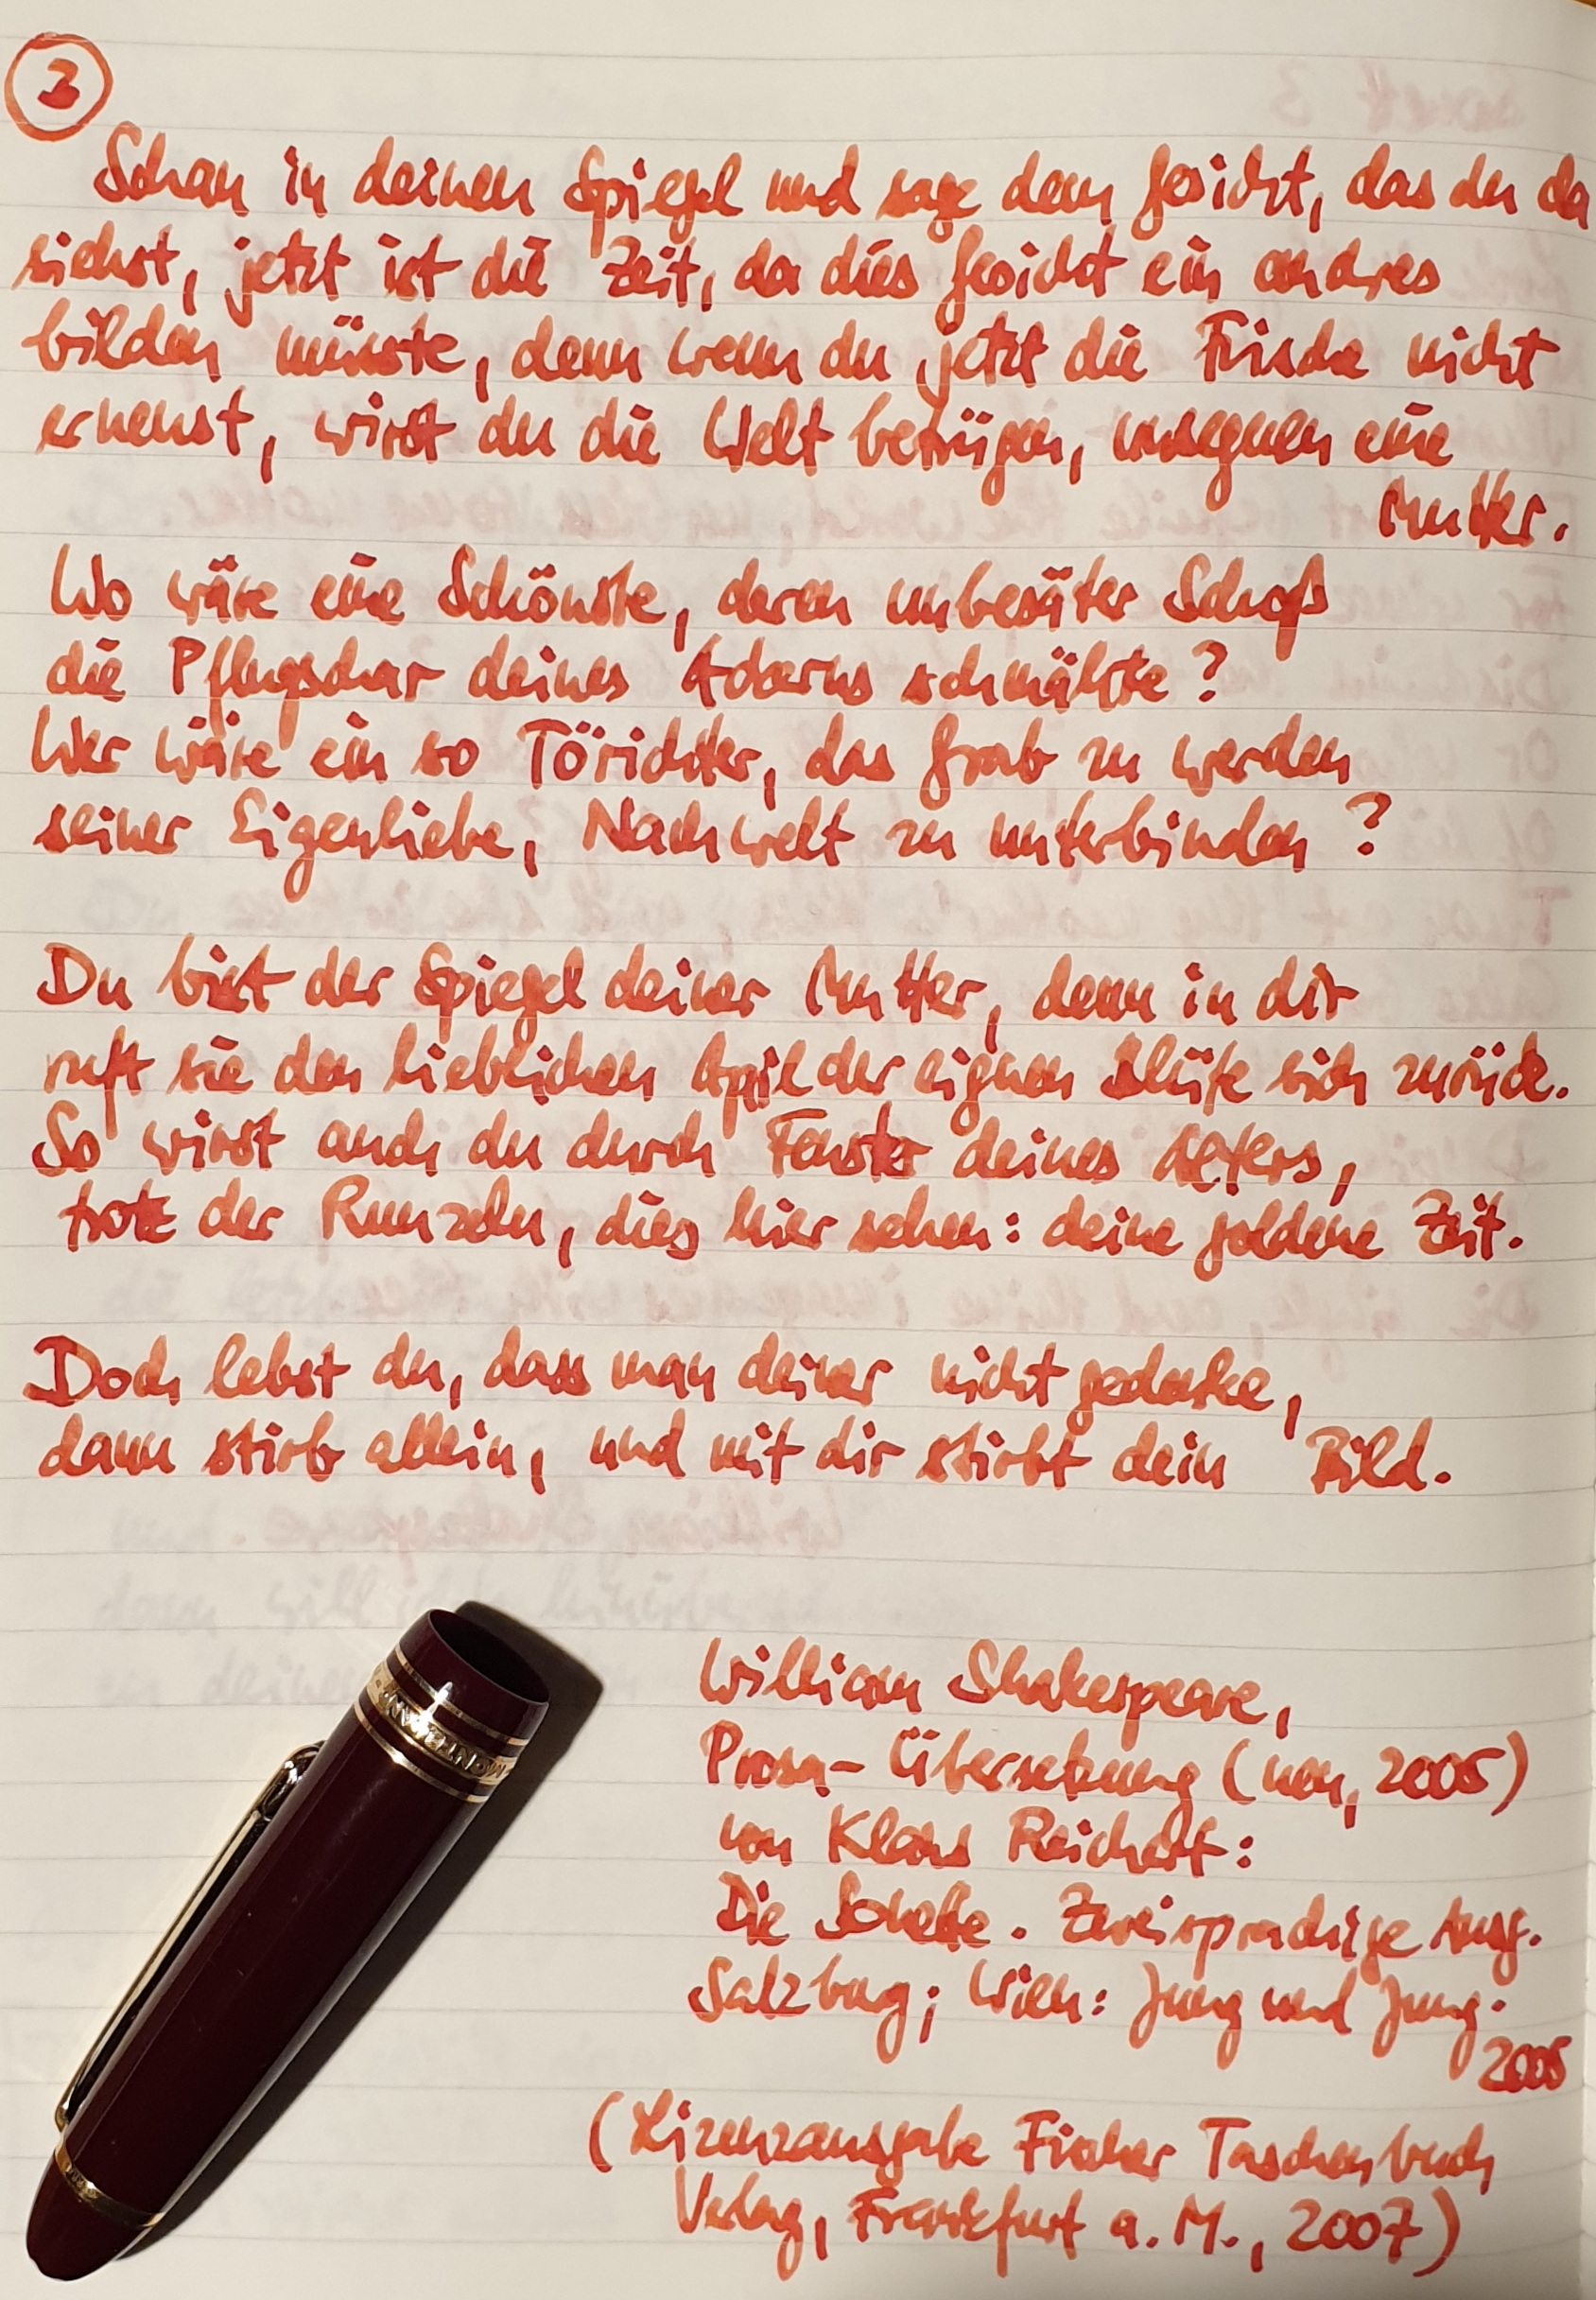 3
Schau in deinen Spiegel und sage dem Gesicht, das du da
siehst, jetzt ist die Zeit, da dies Gesicht ein andres
bilden müsste, denn wenn du jetzt die Frische nicht
erneust, wirst du die Welt betrügen, unsegnen eine
Mutter.
Wo wäre eine Schönste, deren unbesäter Schoß
die Pflugschar deines Ackerns schmähte?
Wer wäre ein so Törichter, das Grab zu werden
seiner Eigenliebe, Nachwelt zu unterbinden?
Du bist der Spiegel deiner Mutter, denn in dir
ruft sie den lieblichen April der eignen Blüte sich zurück.
So wirst auch du durch Fenster deines Alters,
trotz der Runzeln, dies hier sehen: deine goldene Zeit.
Doch lebst du, dass man deiner nicht gedenke,
dann stirb allein, und mit dir stirbt dein Bild.
William Shakespeare,
Prosa-Übersetzung (neu, 2005)
von Klaus Reichert:
Die Sonette. Zweisprachige Ausg.
Salzburg; Wien: Jung und Jung.
2005
(Lizenzausgabe Fischer Taschenbuch
Verlag, Frankfurt a. M., 2007)
MONTBLANC